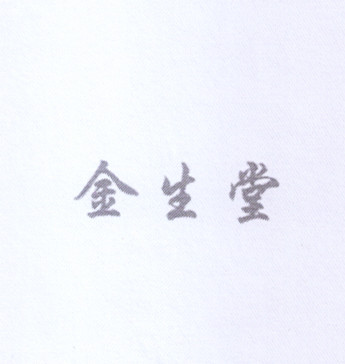 金生堂